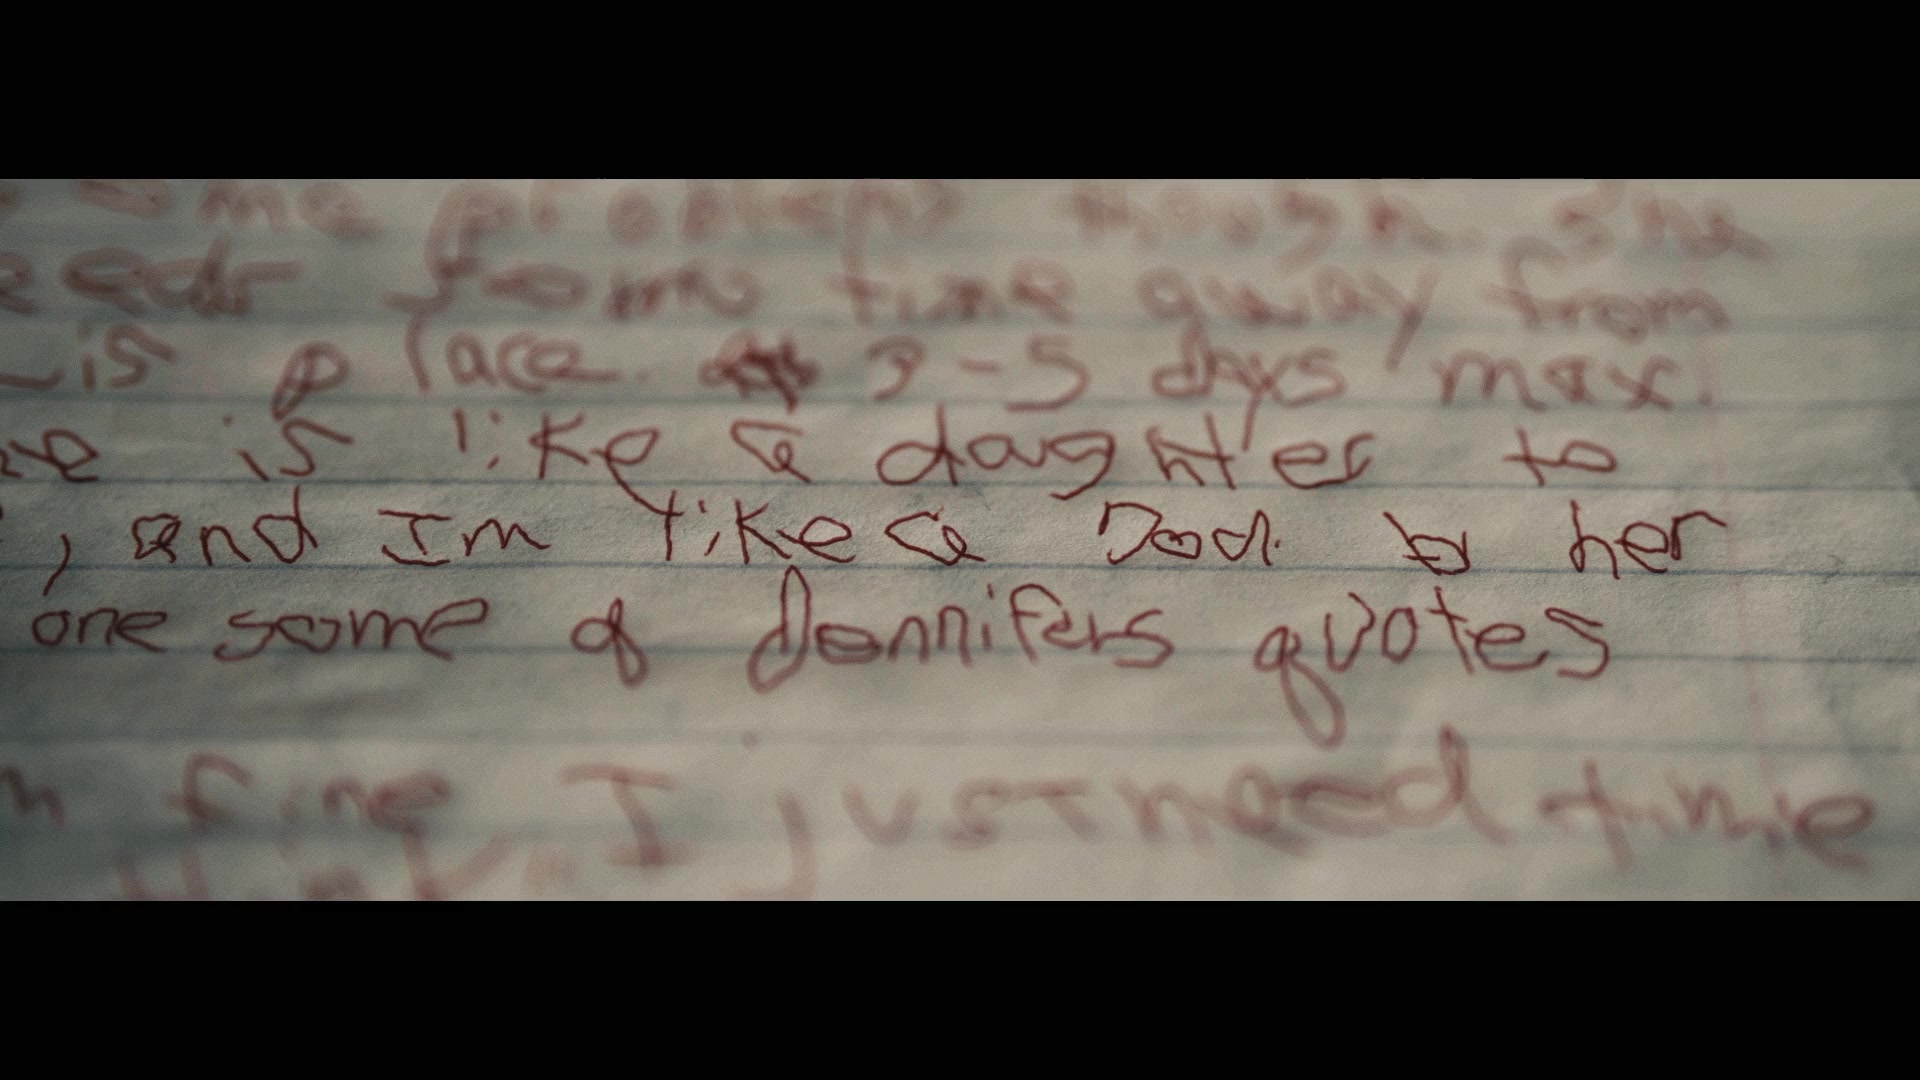 ome problems though. She
eeds some time away from
is place. 3-5 days max.
e is like a daughter to
, and Im like a Dad to her
one some of Jennifers quotes
m fine I just need time